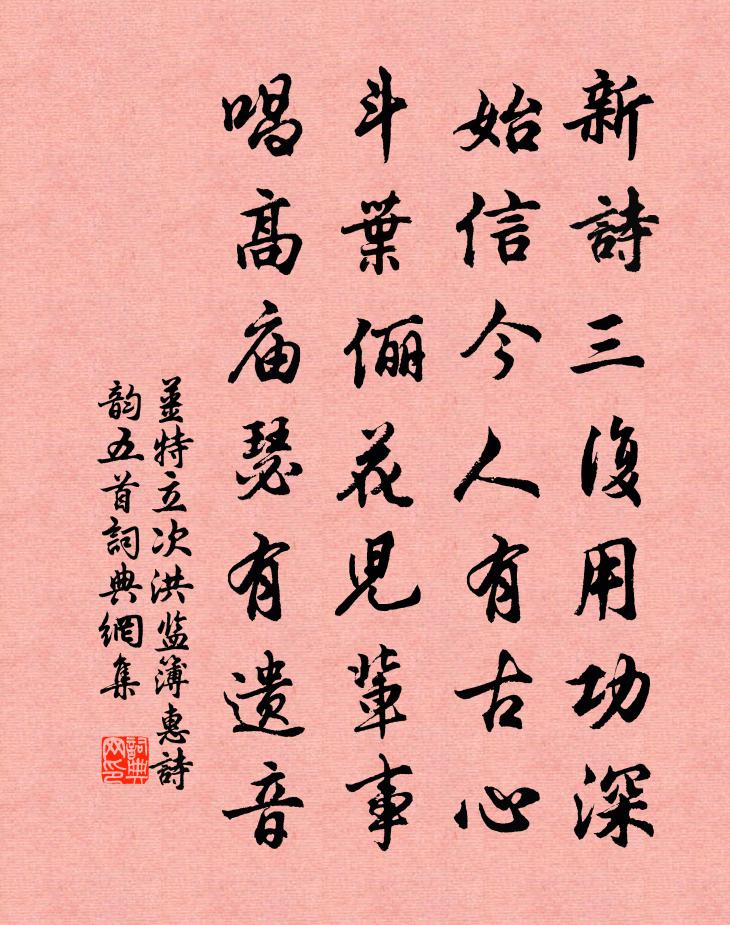 新詩三復用功深
始信今人有古心
斗葉儷花兒輩事
唱高庙瑟有遗音
姜特立次洪监簿惠詩
韵五首詞典網集
詞典
网印